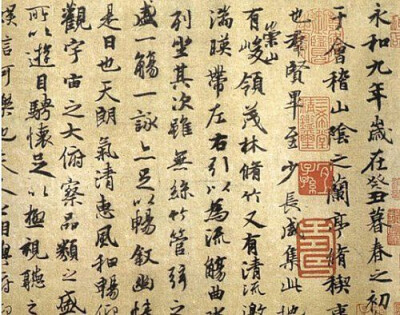 永和九年歲在癸丑暮春之初
于會稽山陰之蘭亭脩稧事
也羣賢畢至少長咸集此地
有崇山峻領茂林脩竹又有清流激
湍暎帶左右引以為流觴曲水
列坐其次雖無絲竹管弦之
盛一觴一詠亦足以暢叙幽情
是日也天朗氣清惠風和暢仰
觀宇宙之大俯察品類之盛
所以遊目騁懷足以極視聽之
娛信可樂也